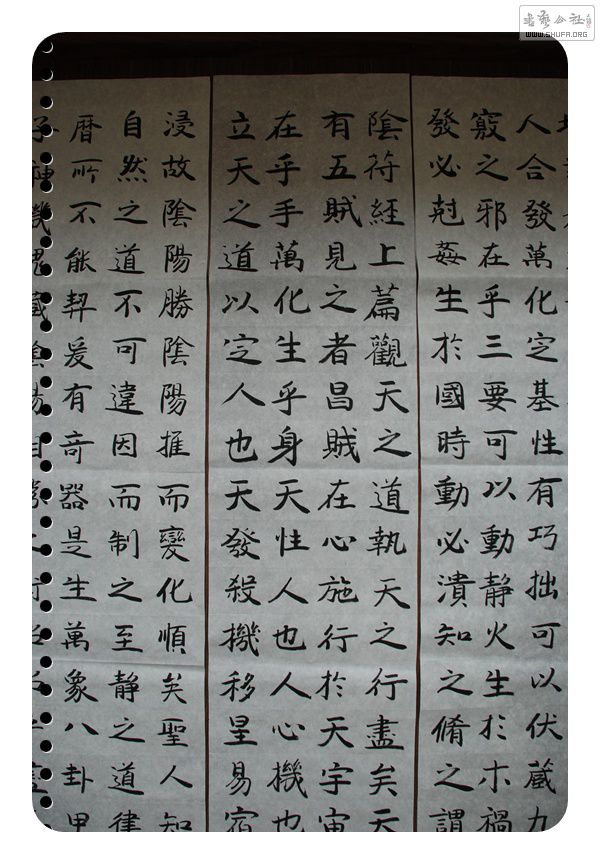 人合發萬化定基性有巧拙可以伏蔵九
竅之邪在乎三要可以動靜火生於木禍
發必尅姦生於國時動必潰知之脩之謂
陰符經上篇觀天之道執天之行盡矣天
有五賊見之者昌賊在心施行於天宇宙
在乎手萬化生乎身天性人也人心機也
立天之道以定人也天發殺機移星易宿
浸故陰陽勝陰陽推而變化順矣聖人知
自然之道不可違因而制之至静之道律
暦所不能契爰有奇器是生萬象八卦甲
WWW.SHUFA.ORG